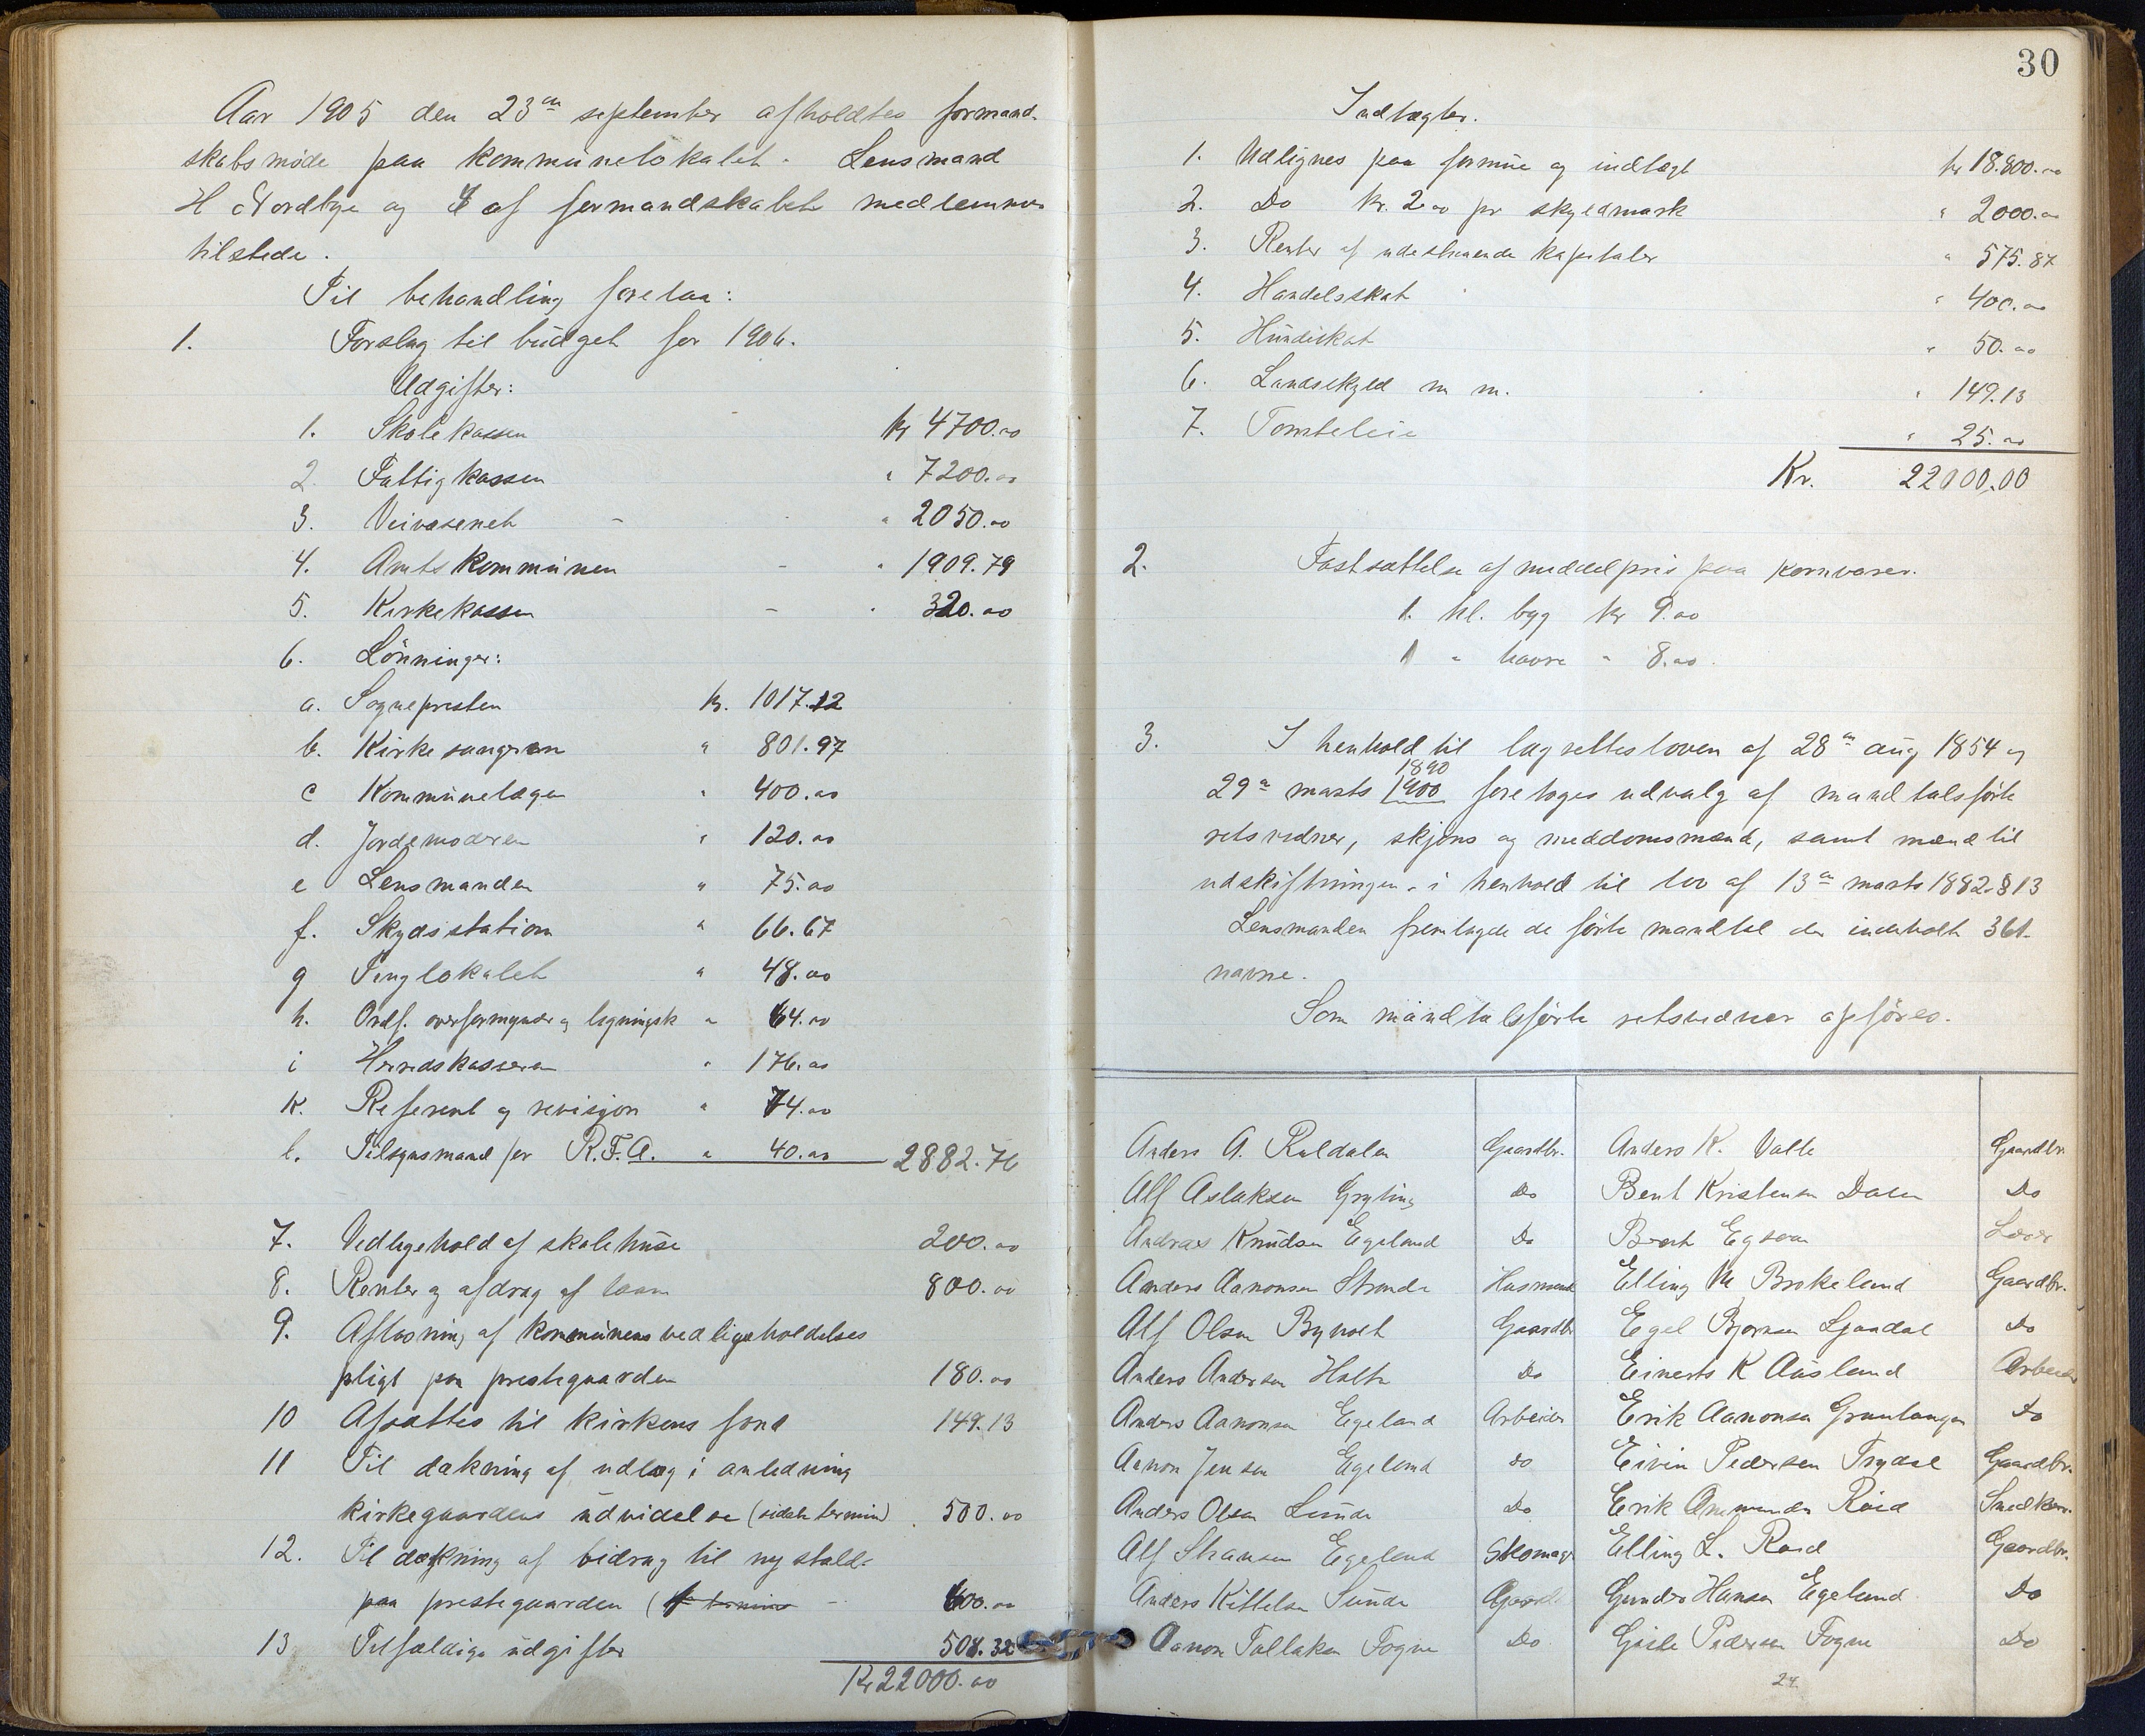 Aar 1905 den 23de september afholdtes formand-
skabsmøde paa kommunelokalet. Lensmand
H Nordbye og af formandskabets medlemmer
tilstede.
Til behandling foretaa:
1. Forslag til budget for 1906.
Udgifter:
1. Skolekassen kr 4700.00
2. Fattigkassen " 7200.00
3. Veivæsenet " 2050.00
4. Amtskommunen " 1909.79
5. Kirkekassen " 320.00
6. Lönninger:
a. Sognepresten kr. 1017.12
b. Kirkesangeren " 801.97
c Kommunelægen " 400.00
d. Jordemoderen " 120.00
e Lensmanden " 75.00
f. Skydsstation " 66.67
g Tinglokalet " 48.00
h. Ordf. overformynder og ligningsk " 64.00
i Herredskasseren " 176.00
k. Referent og revisjon " 74.00
l. Tilsynsmand for R.F.A. " 40.00 2882.76
7. Vedligehold af skolehuse 200.00
8. Renter og afdrag af laan 800.00
9. Afløsning af kommunens vedligeholdelses
pligt paa prestegaarden 180.00
10 Afsættes til kirkens fond 149.13
11 Til dækning af udlæg i anledning
kirkegaardens udvidelse (sidste termin) 500.00
12. Til dækning af bidrag til ny stald-
paa prestegaarden ( 600.00
13 Tilfældige udgifter 508.32
Kr 22000.00
30
Indtægter.
1. Udlignes paa formue og indtægt kr 18.800.00
2. Do kr. 2.00 pr skyldmark " 2000.00
3. Renter af udestaaende kapitaler " 575.87
4. Handelsskat " 400.00
5. Hundeskat " 50.00
6. Landskyld m m. " 149.13
7. Tomteleie " 25.00
Kr. 22000.00
2. Fastsættelse af middelpris paa kornvarer.
1. hl. byg kr 9.00
1 " havre " 8.00.
3. I henhold til lagrettesloven af 28de aug 1854 og
1890
29de marts 1900 foretoges udvalg af mandtalsförte
retsvidner, skjöns og meddomsmænd, samt mænd til
udskiftningen i henhold til lov af 13de marts 1882 § 13
Lensmanden fremlagde de förte mandtal der indeholdt 361
navne.
Som mandtalsförte retsvidner opföres.
Anders A. Guardbr. Anders K. Valle Gaardbr.
Alf Aslaksen Gryting Do Bent Kristensen Dalen Do
Andreas Knudsen Egeland Do Berth Lærer
Anders Aanonsen Strande Husmand Elling M Brokeland Gaardbr.
Alf Olsen Byholt Gaardbr Egel Bjørnsen Ljosdal Do
Anders Andersen Holte Do Einerts K Ausland Arbeider
Anders Aanonsen Egeland Arbeider Erik Aanonsen Do
Aanon Jensen Egeland do Eivin Pedersen Trydal Gaardbr.
Anders Olsen Lunde Do Erik Smedkar.
Alf Egeland Skomager Elling L. Gaardbr.
Anders Kittelsen Sunde Gaardb Gunder Hansen Egeland Do
Aanon Tallaksen Fogne Do Gisle Pedersen Fogne Do
24